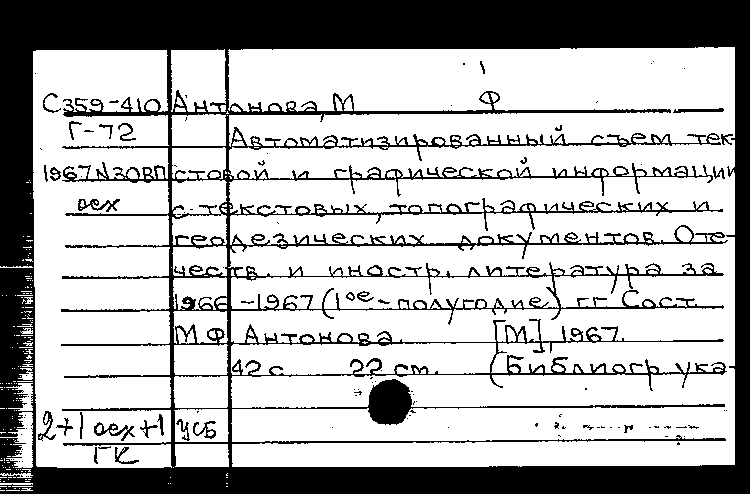 С359-410 Антонова, М Ф
Г-72 Автоматизированный съем тек-
1967N30ВП стовой и графической информации
оех с текстовых, топографических и
геодезических документов. Оте-
честв. и иностр. литература за
1966-1967 (1ое-полугодие) гг Сост
М.Ф. Антонова. [М.], 1967.
42 с 22 см. (Библиогр ука-
2+1 оех+1 УСБ
ГК